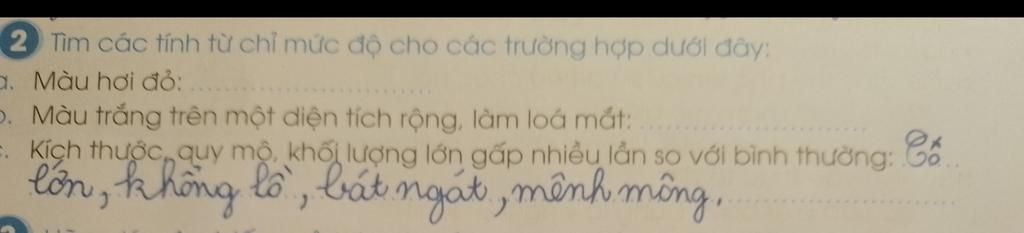 2 Tìm các tính từ chỉ mức độ cho các trường hợp dưới đây:
a. Màu hơi đỏ: ..............................
b. Màu trắng trên một diện tích rộng, làm loá mắt: ..............................
c. Kích thước, quy mô, khối lượng lớn gấp nhiều lần so với bình thường: Cố
lớn, khổng lồ, bát ngát, mênh mông, ..............................